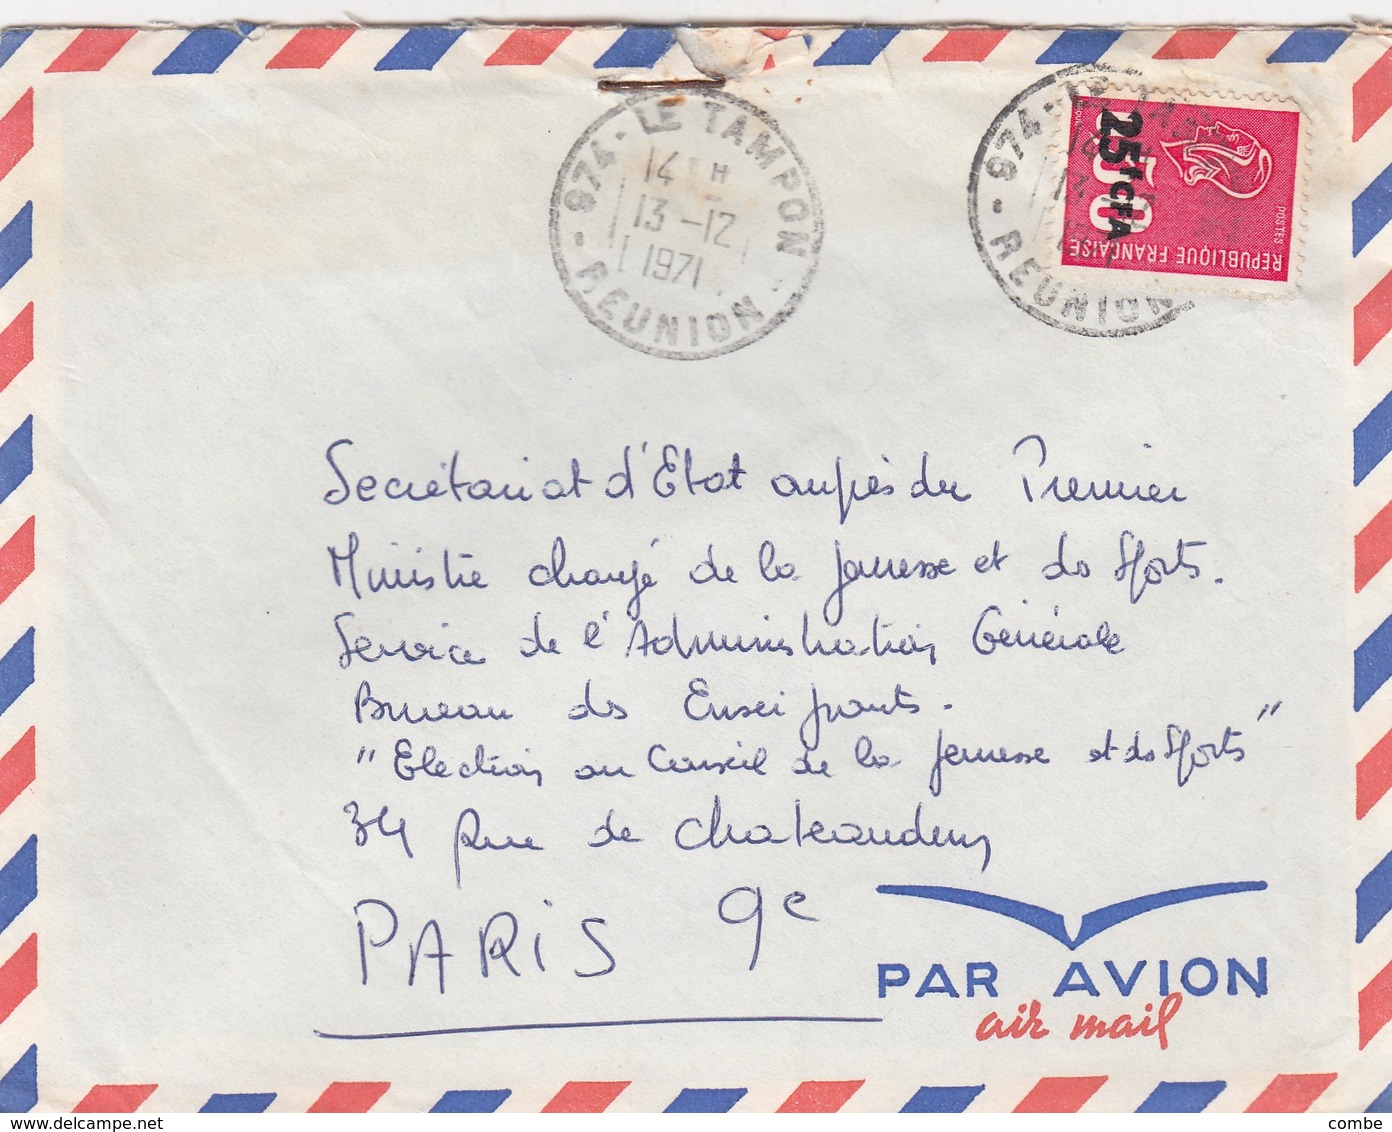 974 - LE TAMPON
14 H
13 - 12
1971
- REUNION
974 - LE TAM
REUNION
25f CFA
0,50
POSTES
REPUBLIQUE FRANÇAISE
Secrétariat d'Etat auprès du Premier
Ministre chargé de la jeunesse et des Sports.
Service de l'Administration Générale
Bureau des Enseignants.
"Election au Conseil de la jeunesse et des Sports"
34 Rue de Chateaudun
PARIS 9e
PAR AVION
air mail
www.delcampe.net
combe